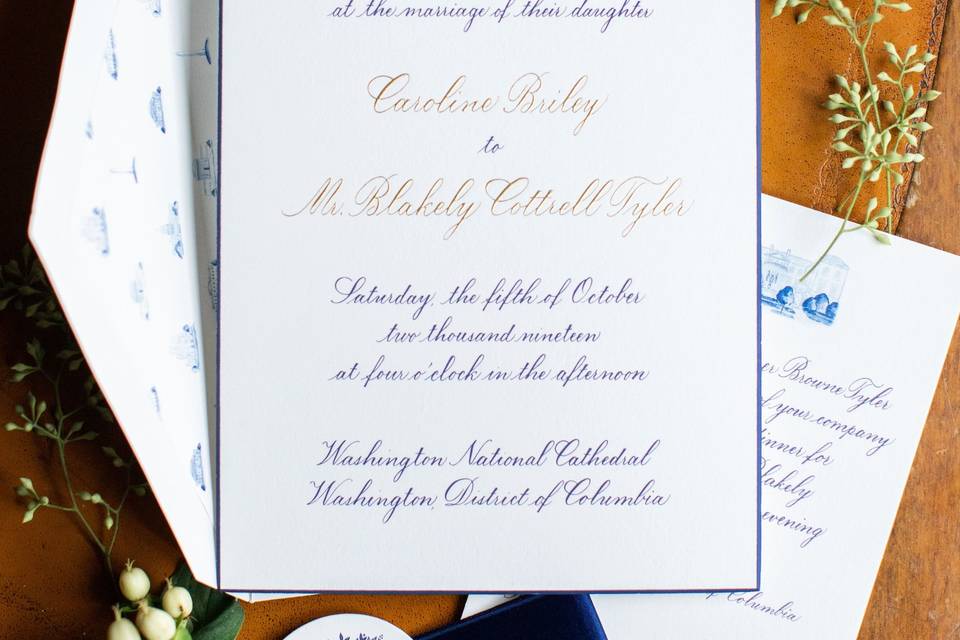 at the marriage of their daughter
Caroline Briley
to
Mr. Blakely Cottrell Tyler
Saturday, the fifth of October
two thousand nineteen
at four o'clock in the afternoon
Washington National Cathedral
Washington, District of Columbia
Browne Tyler
of your company
dinner for
Blakely
evening
of Columbia